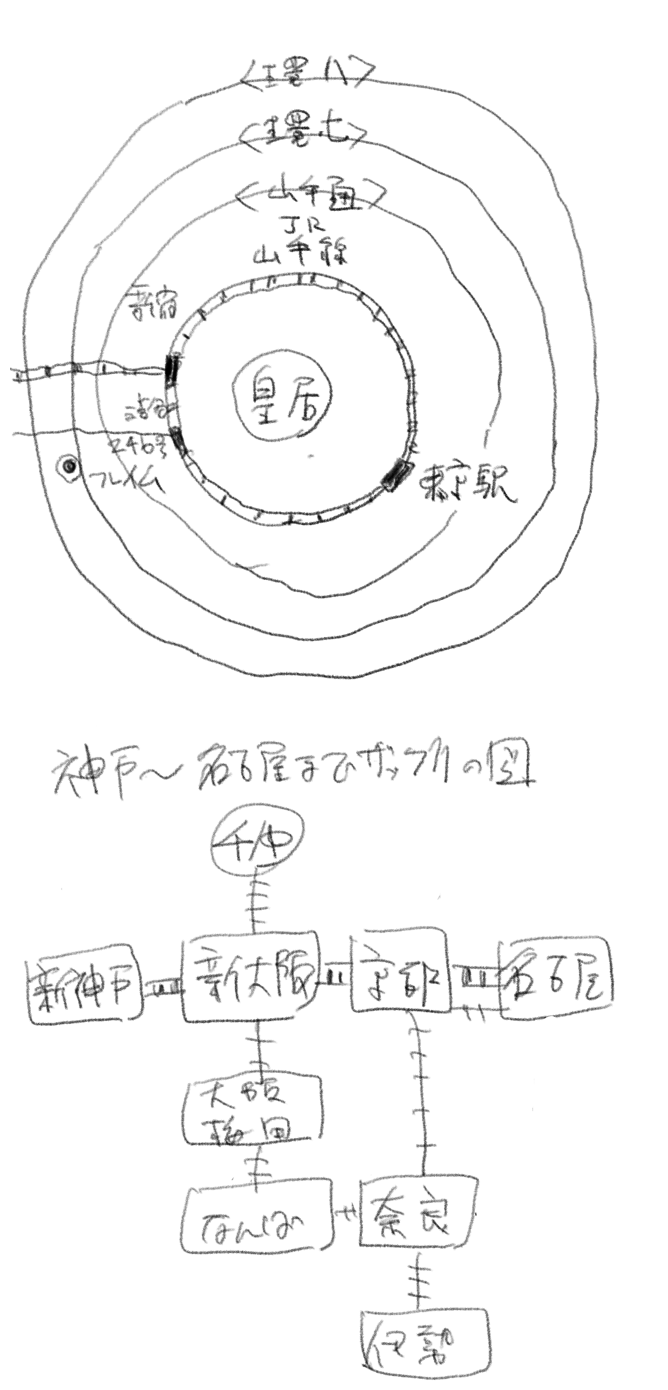 <王畳八>
<王畳七>
<山手通>
JR
山手線
新宿
皇居
渋谷
246号
フレイム
東京駅
神戸～名古屋までザックリの図
千中
新神戸
新大阪
京都
名古屋
大阪
梅田
なんば
奈良
伊勢